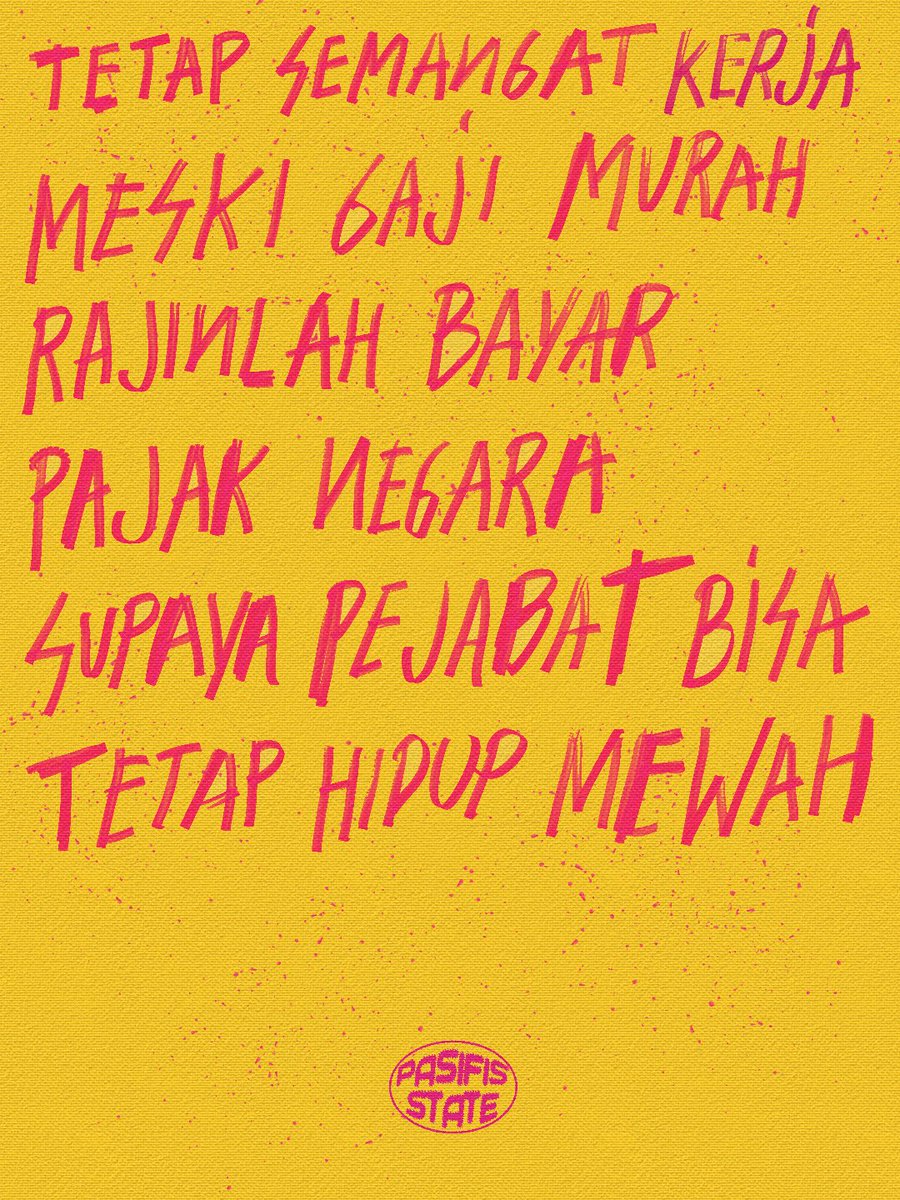 TETAP SEMANGAT KERJA
MESKI GAJI MURAH
RAJINLAH BAYAR
PAJAK NEGARA
SUPAYA PEJABAT BISA
TETAP HIDUP MEWAH
PASIFIS
STATE